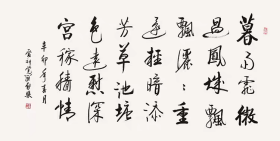 暮雨霏微
過鳳城飄
飄灑〻重
還輕暗添
芳草池塘
色遠慰深
宮稼穡情
辛卯年五月